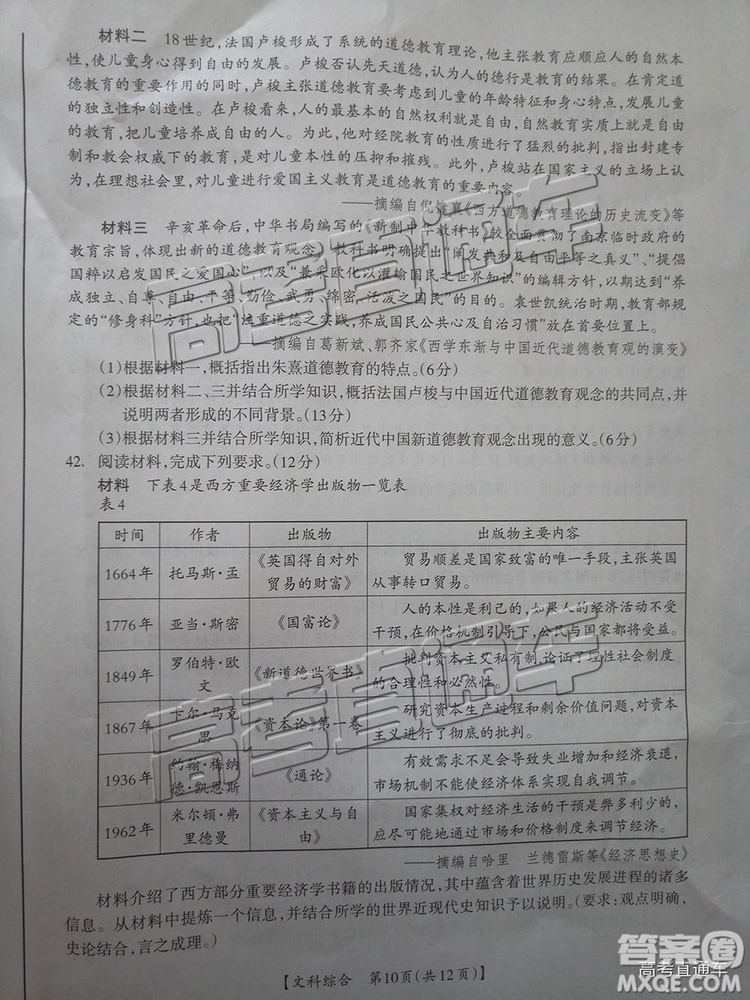 材料二 18世纪,法国卢梭形成了系统的道德教育理论,他主张教育应顺应人的自然本
性,使儿童身心得到自由的发展。卢梭否认先天道德,认为人的德行是教育的结果。在肯定道
德教育的重要作用的同时,卢梭主张道德教育要考虑到儿童的年龄特征和身心特点,发展儿童
的独立性和创造性。在卢梭看来,人的最基本的自然权利就是自由,自然教育实质上就是自由
的教育,把儿童培养成自由的人。为此,他对经院教育的性质进行了猛烈的批判,指出封建专
制和教会权威下的教育,是对儿童本性的压抑和摧残。此外,卢梭站在国家主义的立场上认为,
在理想社会里,对儿童进行爱国主义教育是道德教育的重要内容。
——摘编自倪愫襄《西方道德教育理论的历史流变》等
材料三 辛亥革命后,中华书局编写的《新制中华教科书》较全面贯彻了南京临时政府的
教育宗旨,体现出新的道德教育观念。教科书明确提出“阐发共和及自由平等之真义”、“提倡
国粹以启发国民之爱国心”,以及“兼采欧化以灌输国民之世界知识”的编辑方针,以期达到“养
成独立、自尊、自由、平等、勤俭、武勇、绵密、活泼之国民”的目标。袁世凯统治时期,教育部规
定的“修身科”方针,也把“注重道德之实践,养成国民公共心及自治习惯”放在首要位置上。
——摘编自葛新斌、郭齐家《西学东渐与中国近代道德教育观的演变》
(1)根据材料一,概括指出朱熹道德教育的特点。(6分)
(2)根据材料二、三并结合所学知识,概括法国卢梭与中国近代道德教育观念的共同点,并
说明两者形成的不同背景。(13分)
(3)根据材料三并结合所学知识,简析近代中国新道德教育观念出现的意义。(6分)
42. 阅读材料,完成下列要求。(12分)
材料 下表4是西方重要经济学出版物一览表
表4
时间 作者 出版物 出版物主要内容
1664年 托马斯·孟 《英国得自对外贸易的财富》 贸易顺差是国家致富的唯一手段,主张英国从事转口贸易。
1776年 亚当·斯密 《国富论》 人的本性是利己的,如果人的经济活动不受干预,在价格机制引导下,公民与国家都将受益。
1849年 罗伯特·欧文 《新道德世界书》 批判资本主义私有制,论证了理性社会制度的合理性和必然性。
1867年 卡尔·马克思 《资本论》第一卷 研究资本生产过程和剩余价值问题,对资本主义进行了彻底的批判。
1936年 约翰·梅纳德·凯恩斯 《通论》 有效需求不足会导致失业增加和经济衰退,市场机制不能使经济体系实现自我调节。
1962年 米尔顿·弗里德曼 《资本主义与自由》 国家集权对经济生活的干预是弊多利少的,应尽可能地通过市场和价格制度来调节经济。
——摘编自哈里 兰德雷斯等《经济思想史》
材料介绍了西方部分重要经济学书籍的出版情况,其中蕴含着世界历史发展进程的诸多
信息。从材料中提炼一个信息,并结合所学的世界近现代史知识予以说明。(要求:观点明确,
史论结合,言之成理。)
【文科综合 第10页(共12页)】
高考直通车
高考直通车
答案圈
高考直通车
MXQE.COM